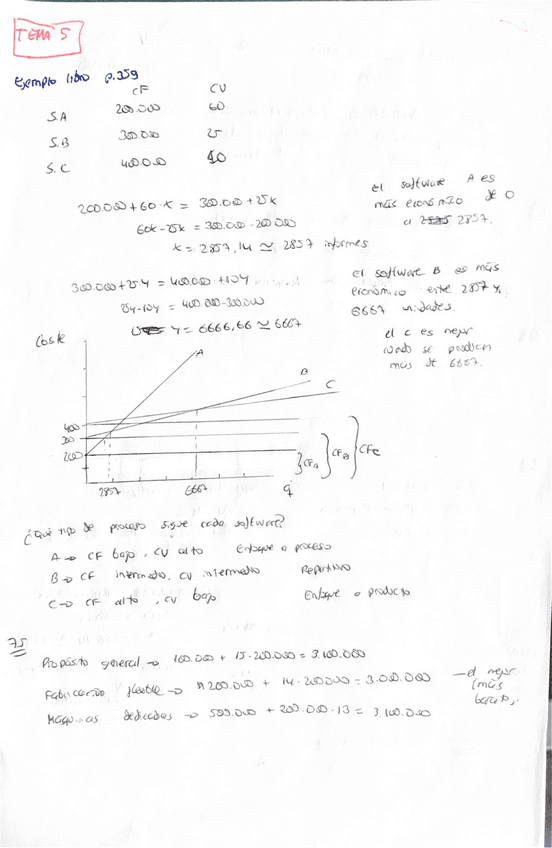 TEMA 5
Ejemplo libro p.359
CF CV
S.A 200.000 60
S.B 300.000 25
S.C 400.000 10
200.000 + 60·x = 300.000 + 25x
60x - 25x = 300.000 - 200.000
x = 2857,14 ≃ 2857 informes
el software A es
más económico de 0
a 2857.
300.000 + 25Y = 400.000 + 10Y
25Y - 10Y = 400.000 - 300.000
Y = 6666,66 ≃ 6667
el software B es más
económico entre 2857 y
6667 unidades.
el C es mejor
cuando se produzcan
más de 6667.
Coste
A
B
C
400
300
200
CFA
CFB
CFC
2857 6667 q
¿Qué tipo de proceso sigue cada software?
A → CF bajo, CV alto Enfoque a proceso
B → CF intermedio, CV intermedio Repetitivo
C → CF alto, CV bajo Enfoque a producto
7.5
Propósito general → 100.000 + 15·200.000 = 3.100.000
Fabricación flexible → 200.000 + 14·200.000 = 3.000.000 — el mejor
(más
barato).
Máquinas dedicadas → 500.000 + 200.000·13 = 3.100.000